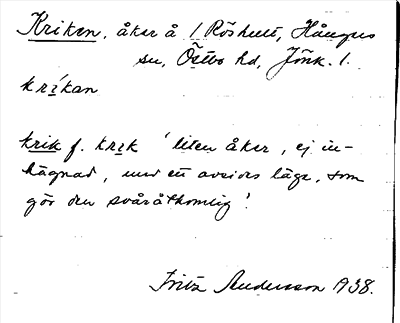 Kriken, åker å 1 Röshult, Hångers
sn, Östbo hd, Jönk. l.
kríkan
krik f. krɪk 'liten åker, ej in-
hägnad, med ett avsides läge, som
gör den svåråtkomlig'.
Fritz Andersson 1938.